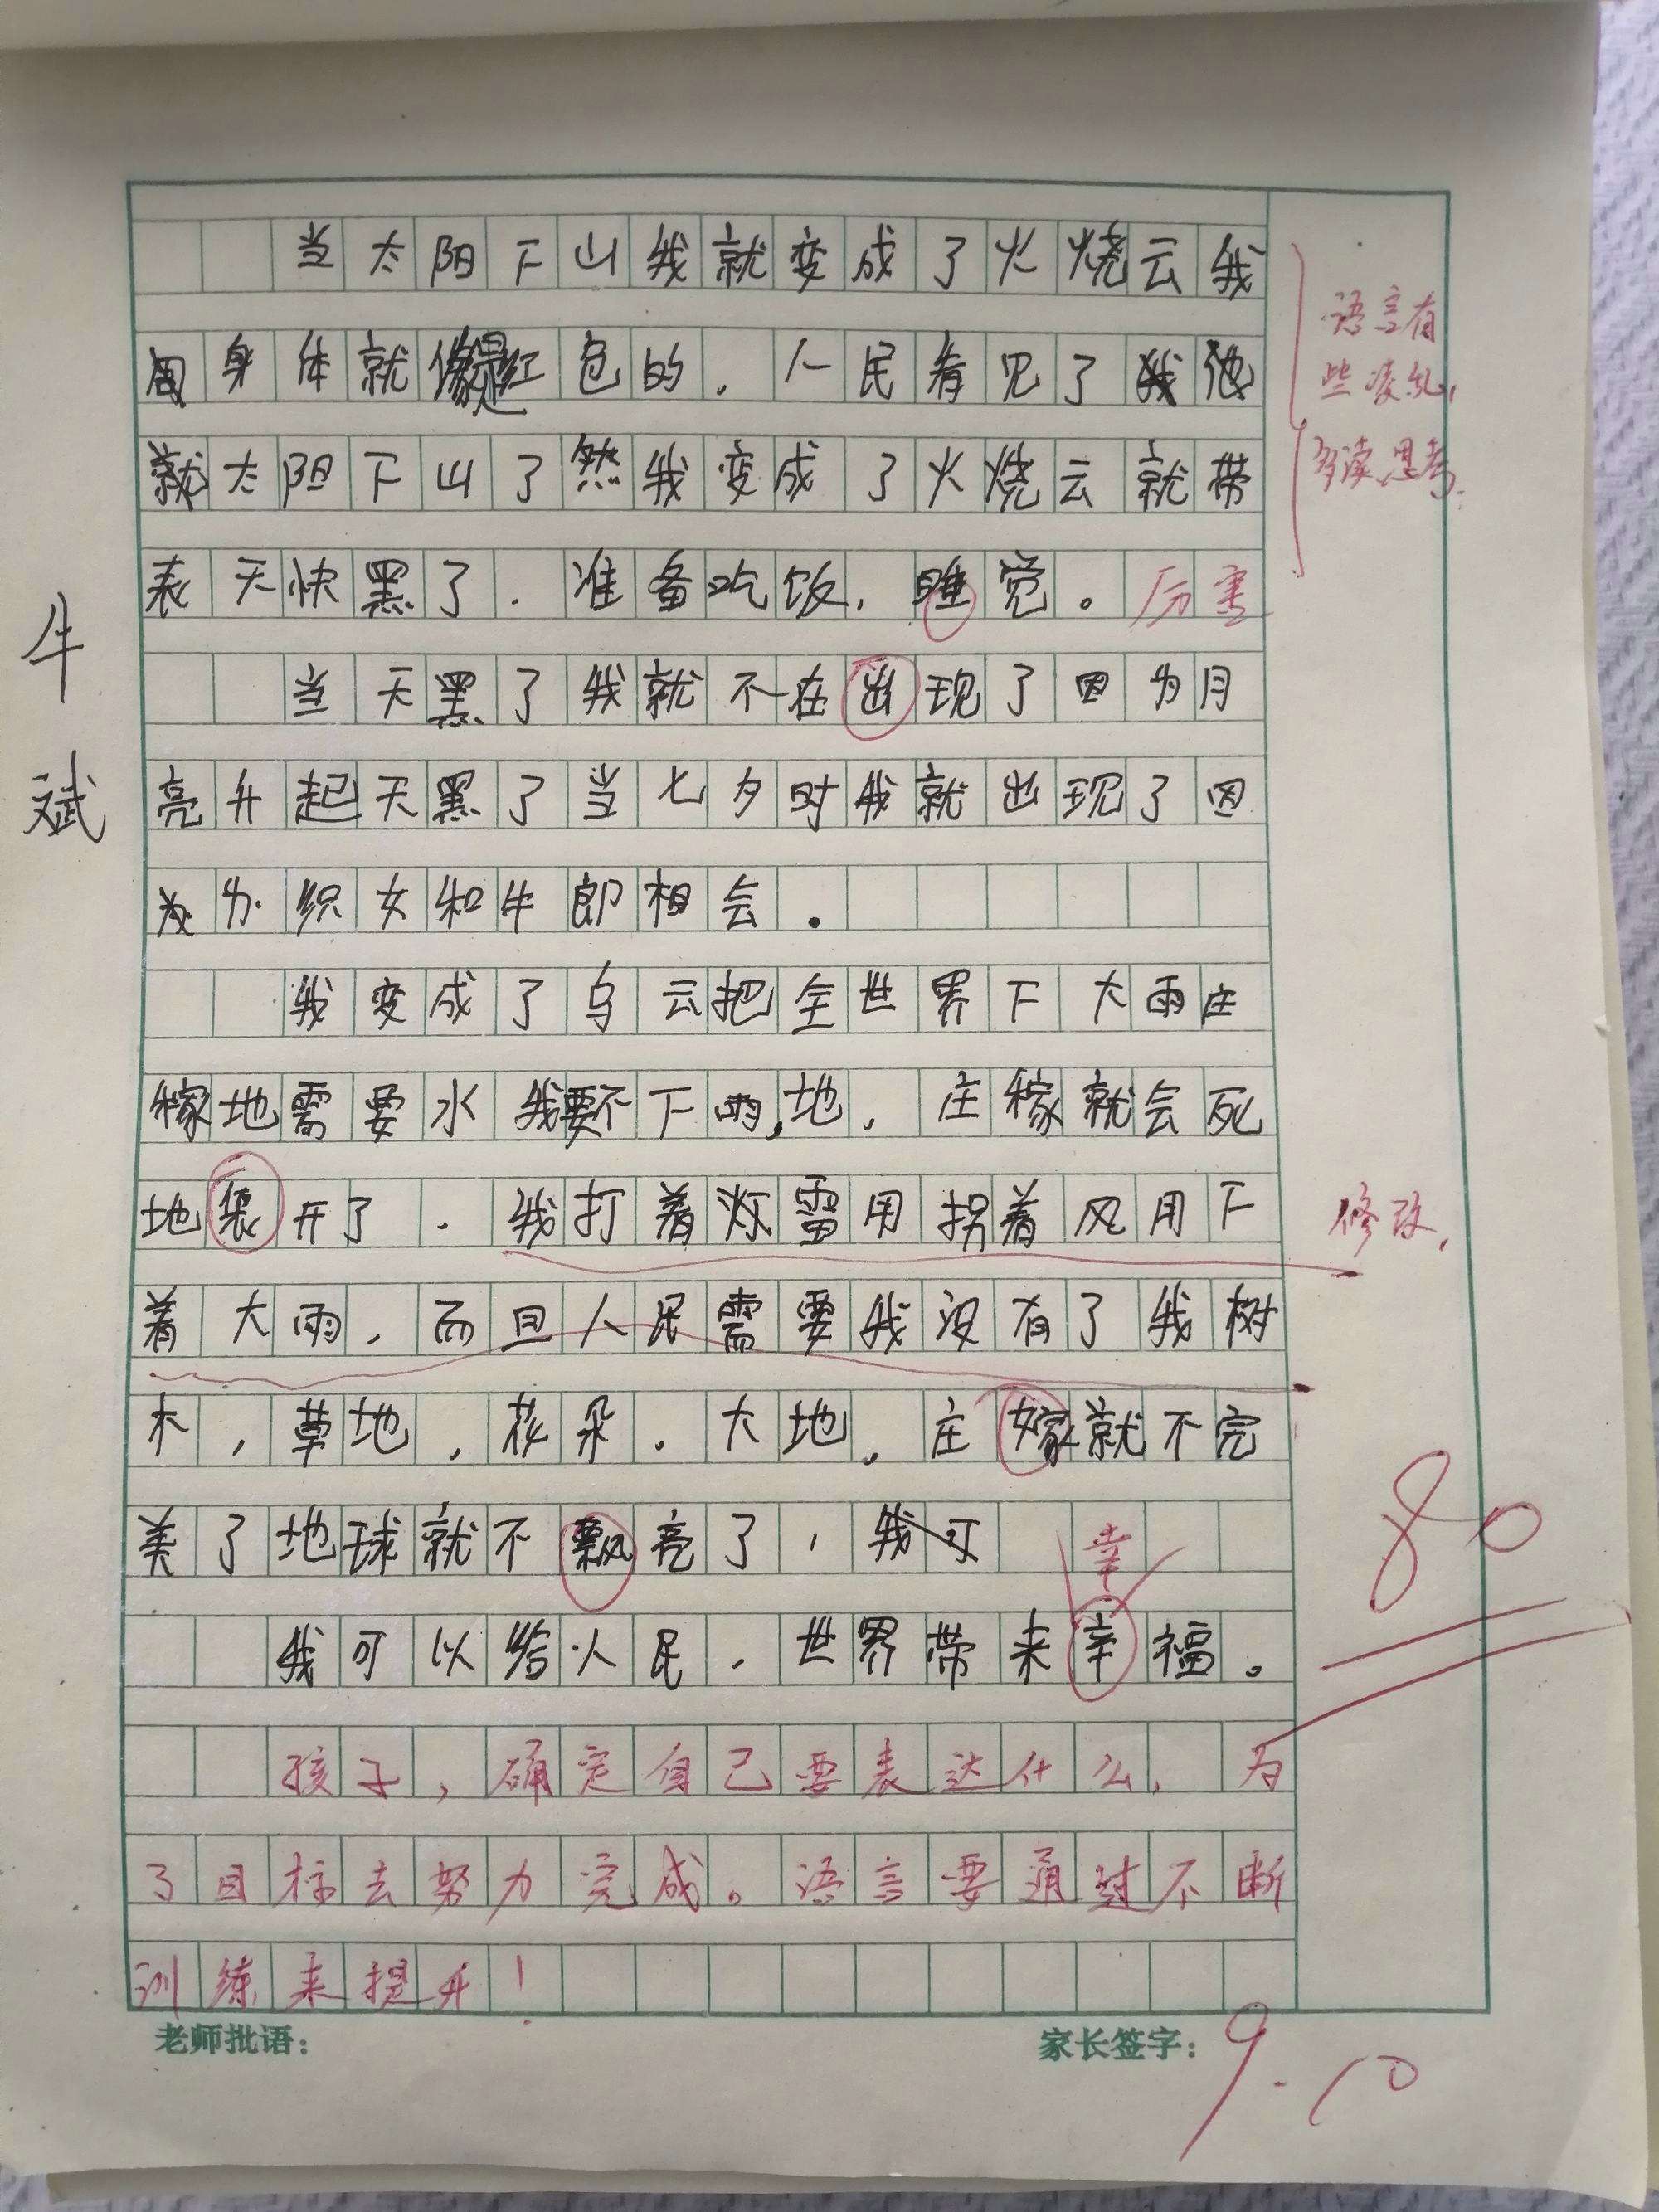 当太阳下山我就变成了火烧云我
周身体就像是红色的．人民看见了我他
就太阳下山了然我变成了火烧云就带
表天快黑了．准备吃饭，睡觉。厉害
当天黑了我就不在出现了因为月
亮升起天黑了当七夕时我就出现了因
为为织女和牛郎相会．
我变成了乌云把全世界下大雨庄
稼地需要水我要不下雨，地，庄稼就会死
地裂开了．我打着灯雷用拐着风用下
着大雨，而且人民需要我没有了我树
木，草地，花朵．大地，庄嫁就不完
美了地球就不飘亮了，我可
幸
我可以给人民，世界带来辛福。
孩子，确定自己要表达什么，为
了目标去努力完成。语言要通过不断
训练来提升！
老师批语：
家长签字：
9.10
牛斌
语言有
些凌乱，
多读思考．
修改，
80